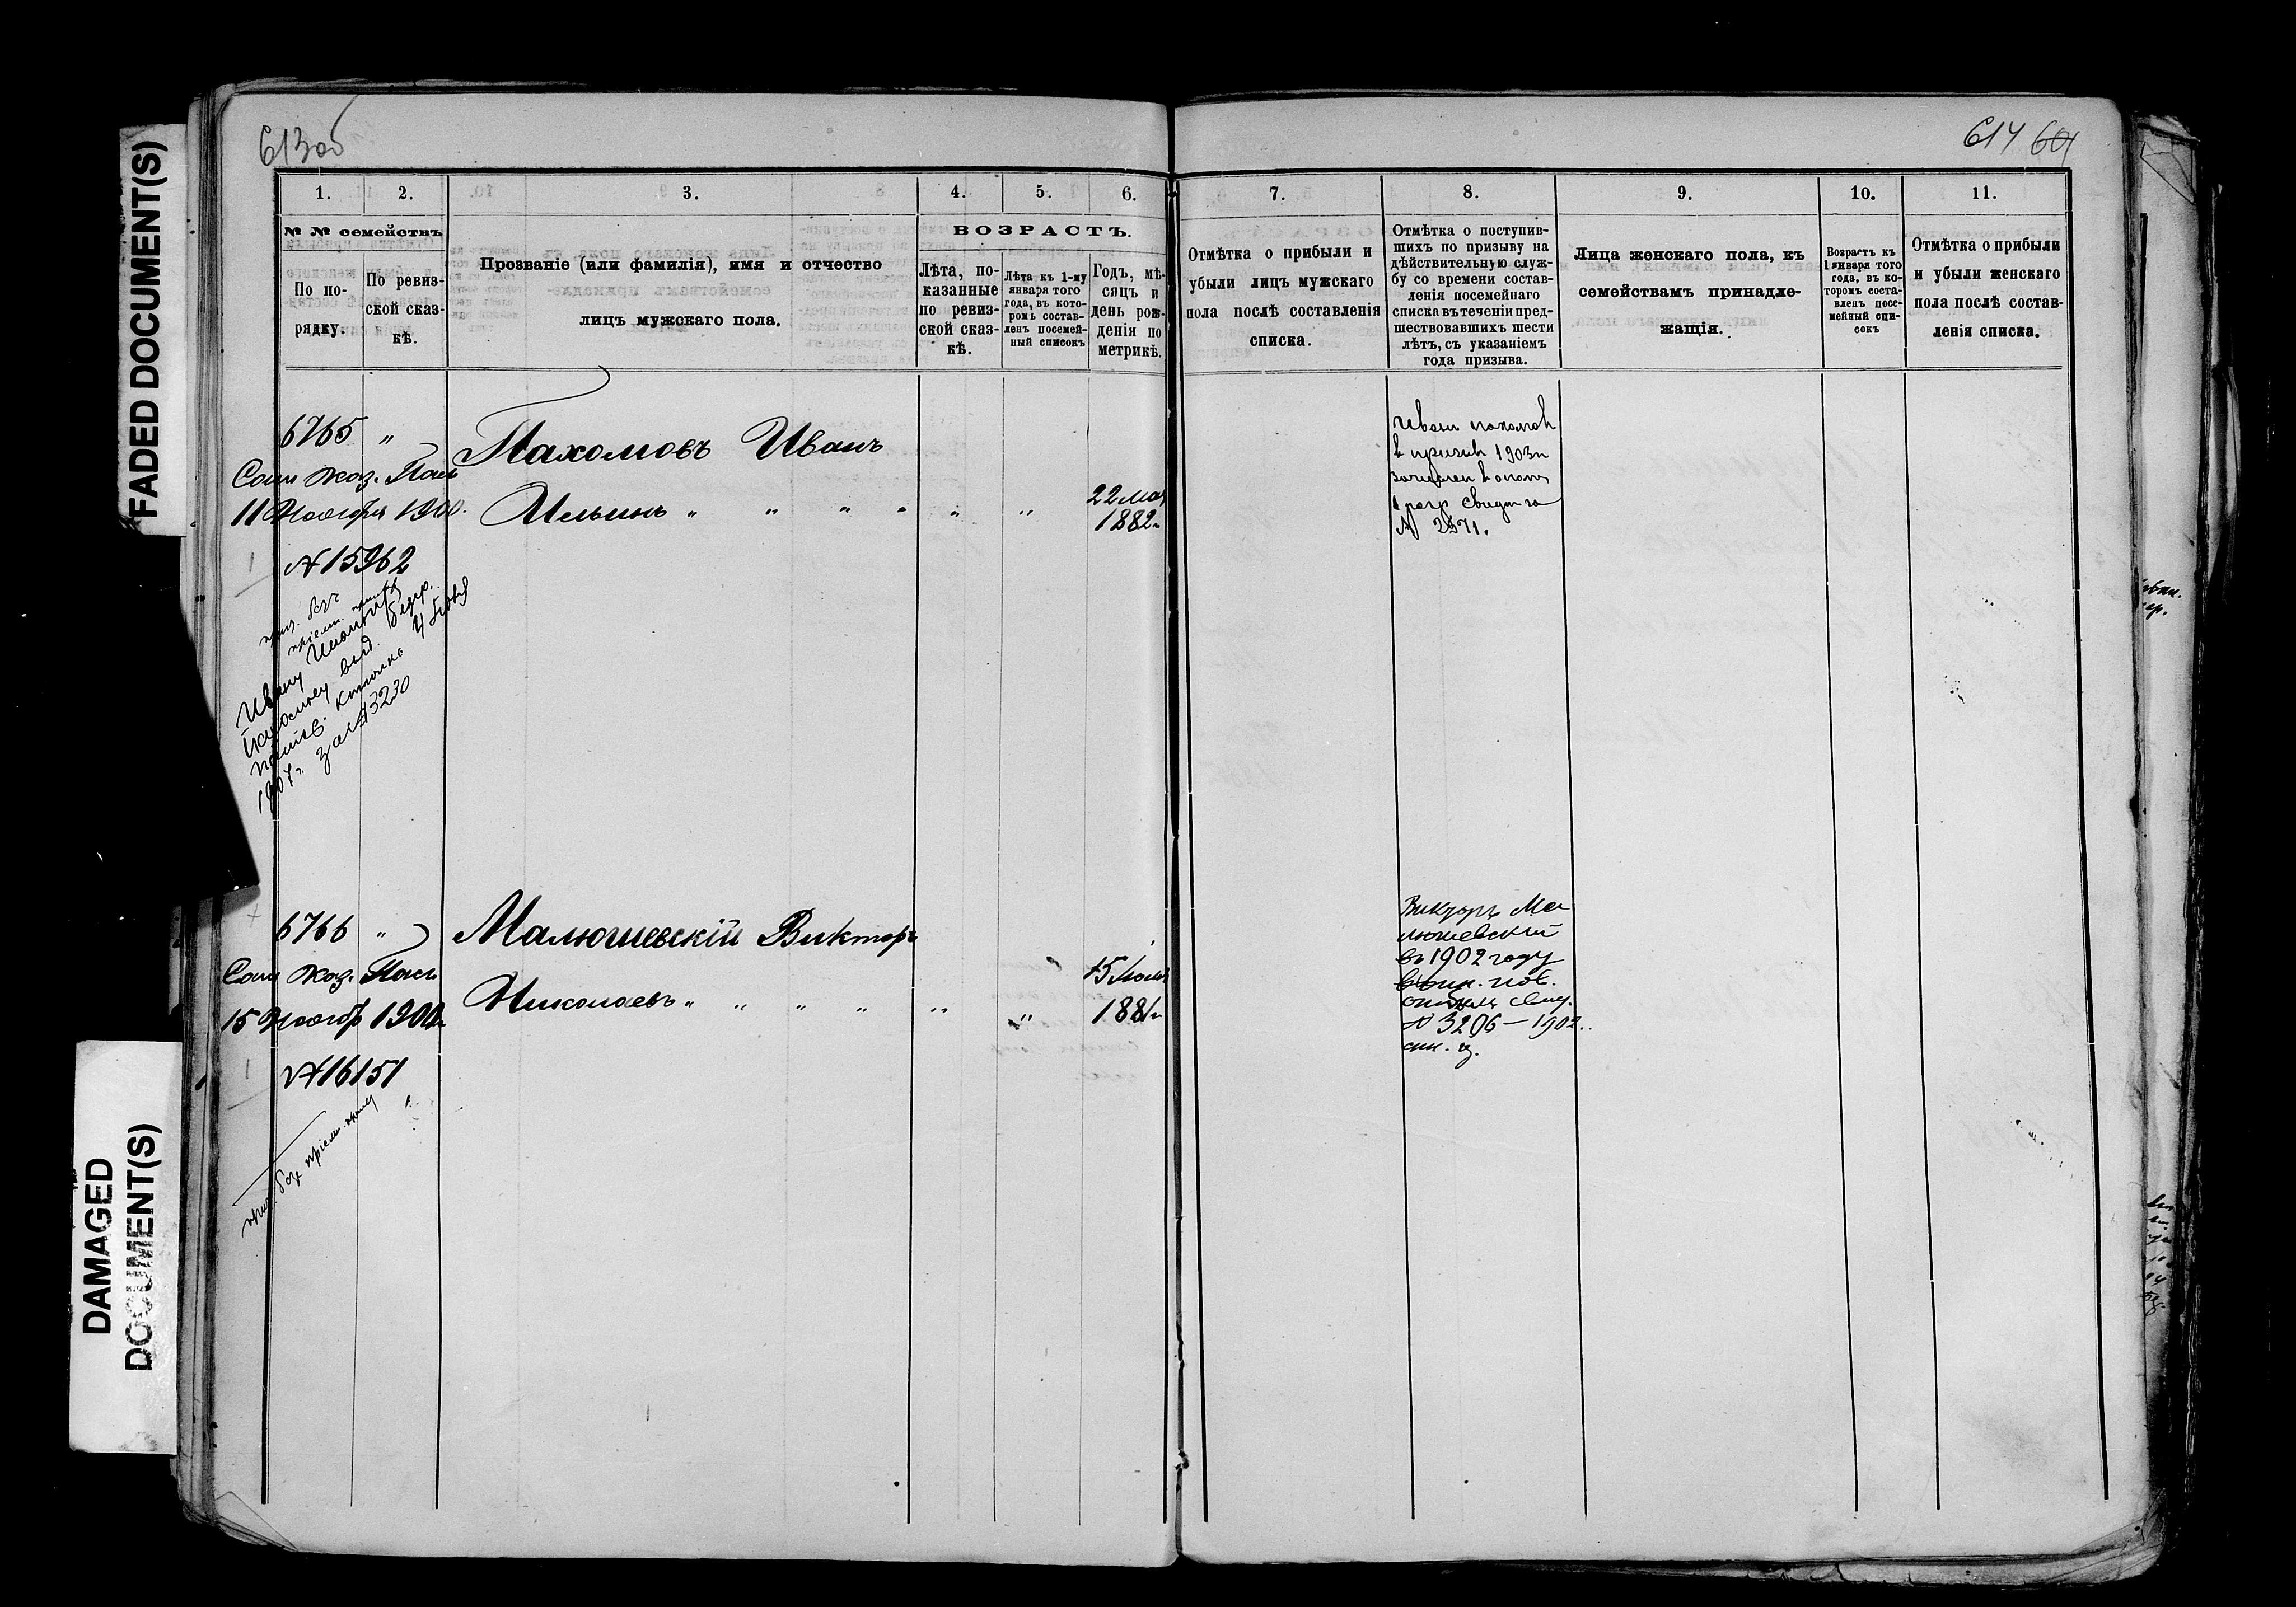 FADED DOCUMENT(S)
DAMAGED
DOCUMENT(S)
613об
614 601
1. 2. 3. 4. 5. 6.
№ № семействъ
По по-
рядку.
По ревиз-
ской сказ-
кѣ.
Прозваніе (или фамилія), имя и отчество
лицъ мужскаго пола.
ВОЗРАСТЪ.
Лѣта, по-
казанные
по ревиз-
ской сказ-
кѣ.
Лѣта къ 1-му
января того
года, въ кото-
ромъ состав-
ленъ посемей-
ный списокъ
Годъ, мѣ-
сяцъ и
день рож-
денія по
метрикѣ.
7. 8. 9. 10. 11.
Отмѣтка о прибыли и
убыли лицъ мужскаго
пола послѣ составленія
списка.
Отмѣтка о поступив-
шихъ по призыву на
дѣйствительную служ-
бу со времени состав-
ленія посемейнаго
списка въ теченіи пред-
шествовавшихъ шести
лѣтъ, съ указаніемъ
года призыва.
Лица женскаго пола, къ
семействамъ принадле-
жащія.
Возрастъ къ
1 января того
года, въ ко-
торомъ соста-
вленъ посе-
мейный спи-
сокъ
Отмѣтка о прибыли
и убыли женскаго
пола послѣ состав-
ленія списка.
6765 "
Пахомовъ Иванъ
Каз. Пал
11 Ноября 1900.
Ильинъ " " " " " "
22 мая
1882
№ 15962
Ивану
выд.
1907 г. за № 13230
Иван Пахомов
в призыв 1903
зачислен в
1 разр свидет за
№ 2571.
6766 "
Малюшевскій Викторъ
Каз. Пал
15 Нояб 1901
Николаевъ " " " " " "
15 Іюля
1881
№ 16151
Викторъ Ма
люшевскій
въ 1902 году
№ 3206 — 1902.